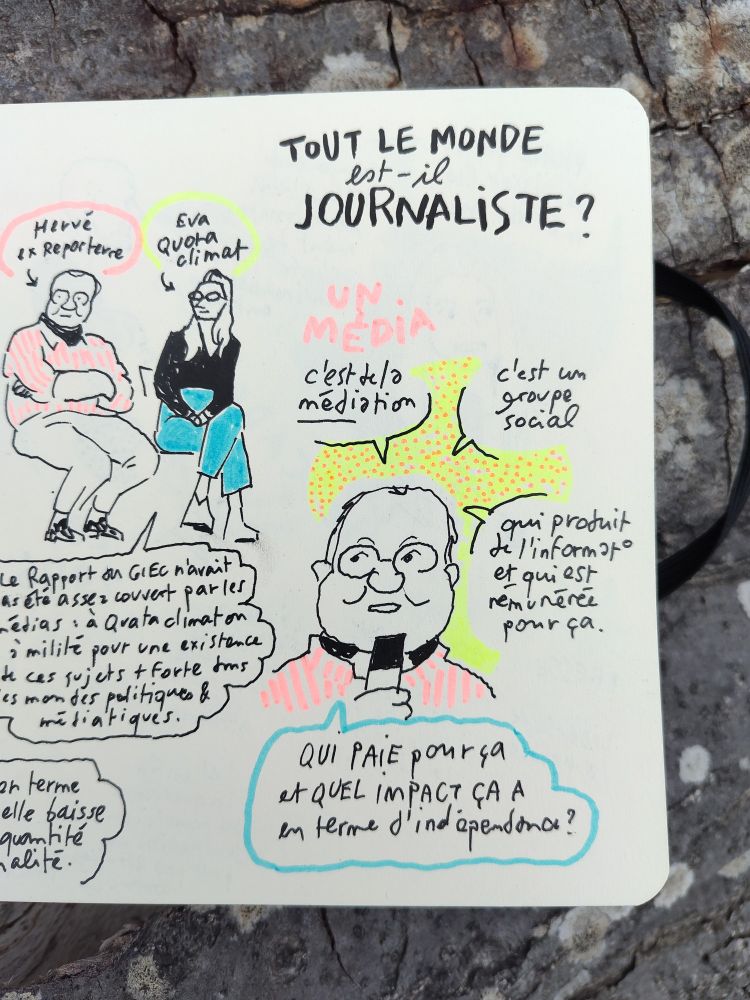 TOUT LE MONDE
est-il
JOURNALISTE ?
Hervé
ex Reporterre
Eva
Quota
climat
UN
MÉDIA
c'est de la
médiation
c'est un
groupe
social
qui produit
de l'informat°
et qui est
rémunérée
pour ça.
Le Rapport du GIEC n'avait
pas été assez couvert par les
médias : à Quota climat on
a milité pour une existence
de ces sujets + forte dans
les mondes politiques &
médiatiques.
QUI PAIE pour ça
et QUEL IMPACT ÇA A
en terme d'indépendance ?
en terme
elle baisse
quantité